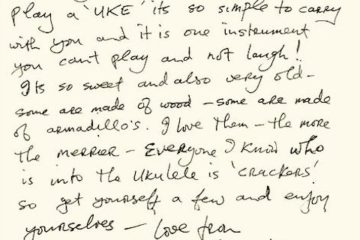 play a 'UKE' its so simple to carry
with you and it is one instrument
you can't play and not laugh!!
Its so sweet and also very old –
some are made of wood – some are made
of armadillo's. I love them – the more
the merrier – Everyone I know who
is into the Ukulele is 'crackers'
so get yourself a few and enjoy
yourselves – Love from